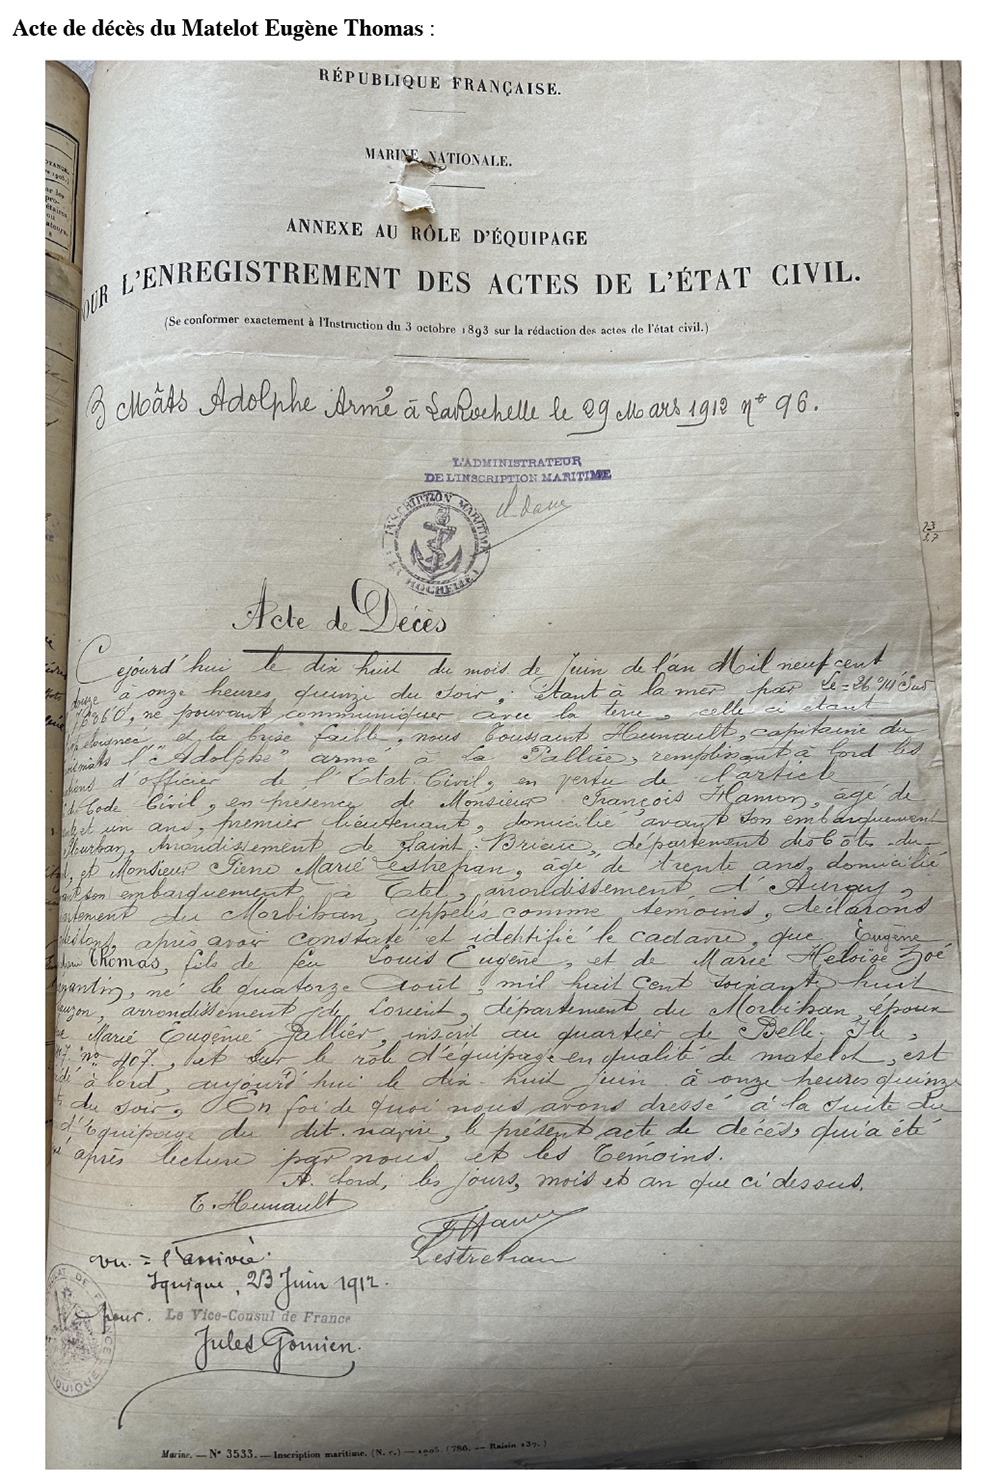 Acte de décès du Matelot Eugène Thomas :
RÉPUBLIQUE FRANÇAISE.
MARINE NATIONALE.
ANNEXE AU RÔLE D'ÉQUIPAGE
OUR L'ENREGISTREMENT DES ACTES DE L'ÉTAT CIVIL.
(Se conformer exactement à l'Instruction du 3 octobre 1893 sur la rédaction des actes de l'état civil.)
3 Mâts Adolphe Armé à LaRochelle le 29 Mars 1912 n° 96.
L'ADMINISTRATEUR
DE L'INSCRIPTION MARITIME
INSCRIPTION MARITIME
LA ROCHELLE
Acte de Décès
Cejourd'hui le dix huit du mois de Juin de l'an Mil neuf cent
douze à onze heures quinze du soir, étant à la mer par Le = 26°14' Sud
ne pouvant communiquer avec la terre, celle ci étant
éloignée et la brise faible, nous Toussaint Hunault, capitaine du
mâts l'"Adolphe" armé à La Pallice, remplissant à bord les
d'officier de l'Etat Civil, en vertu de l'article
Code Civil, en présence de Monsieur François Hamon, âgé de
et un ans, premier lieutenant, domicilié avant son embarquement
arrondissement de Saint Brieuc, département des Côtes du
et Monsieur Piere Marie Lestrehan, âgé de trente ans, domicilié
son embarquement à Etel, arrondissement d'Auray,
du Morbihan, appelés comme témoins, déclarons
après avoir constaté et identifié le cadavre, que Eugène
Thomas, fils de feu Louis Eugène, et de Marie Héloïse Zoé
né le quatorze Août mil huit cent soixante huit
arrondissement de Lorient, département du Morbihan, époux
Marie Eugénie Gallier, inscrit au quartier de Belle-Ile,
n° 407, et sur le rôle d'équipage en qualité de matelot, est
à bord, aujourd'hui le dix-huit juin à onze heures quinze
du soir. En foi de quoi nous avons dressé à la suite du
d'Equipage du dit navire, le présent acte de décès, qui a été
après lecture par nous et les Témoins.
A bord, les jours, mois et an que ci dessus.
T. Hunault
Lestrehan
vu = l'arrivée.
Iquique, 23 Juin 1912.
pour. Le Vice-Consul de France
Jules Gomien.
IQUIQUE
Marine. — N° 3533. — Inscription maritime. (N. c.) — (786. — Raisin 137.)